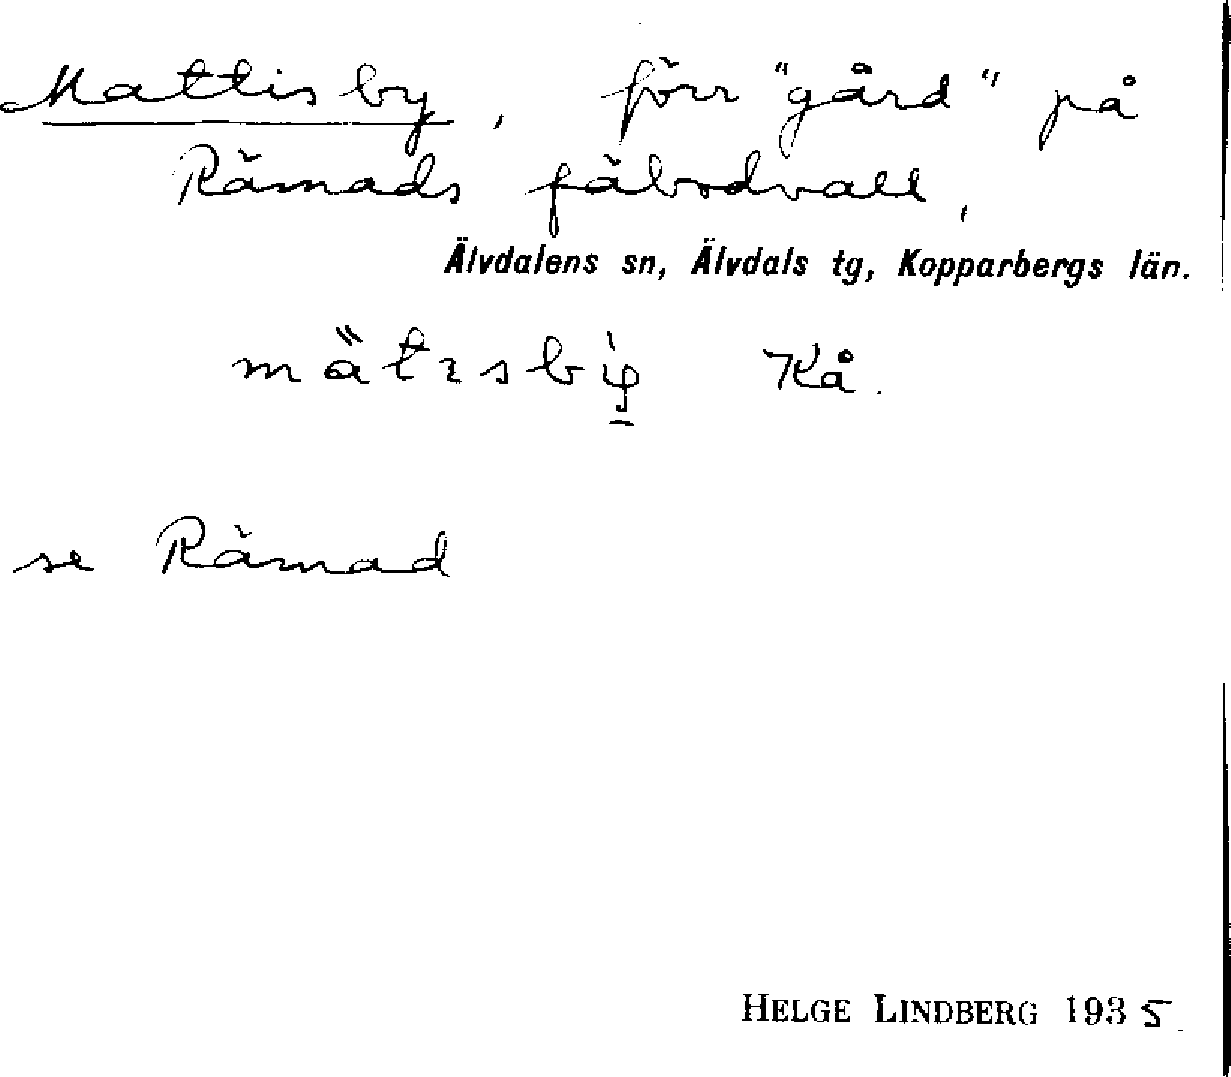 Mattisby, förr "gård" på
Råmads fäbodvall,
Älvdalens sn, Älvdals tg, Kopparbergs län.
Kå.
se Råmad
HELGE LINDBERG 1935